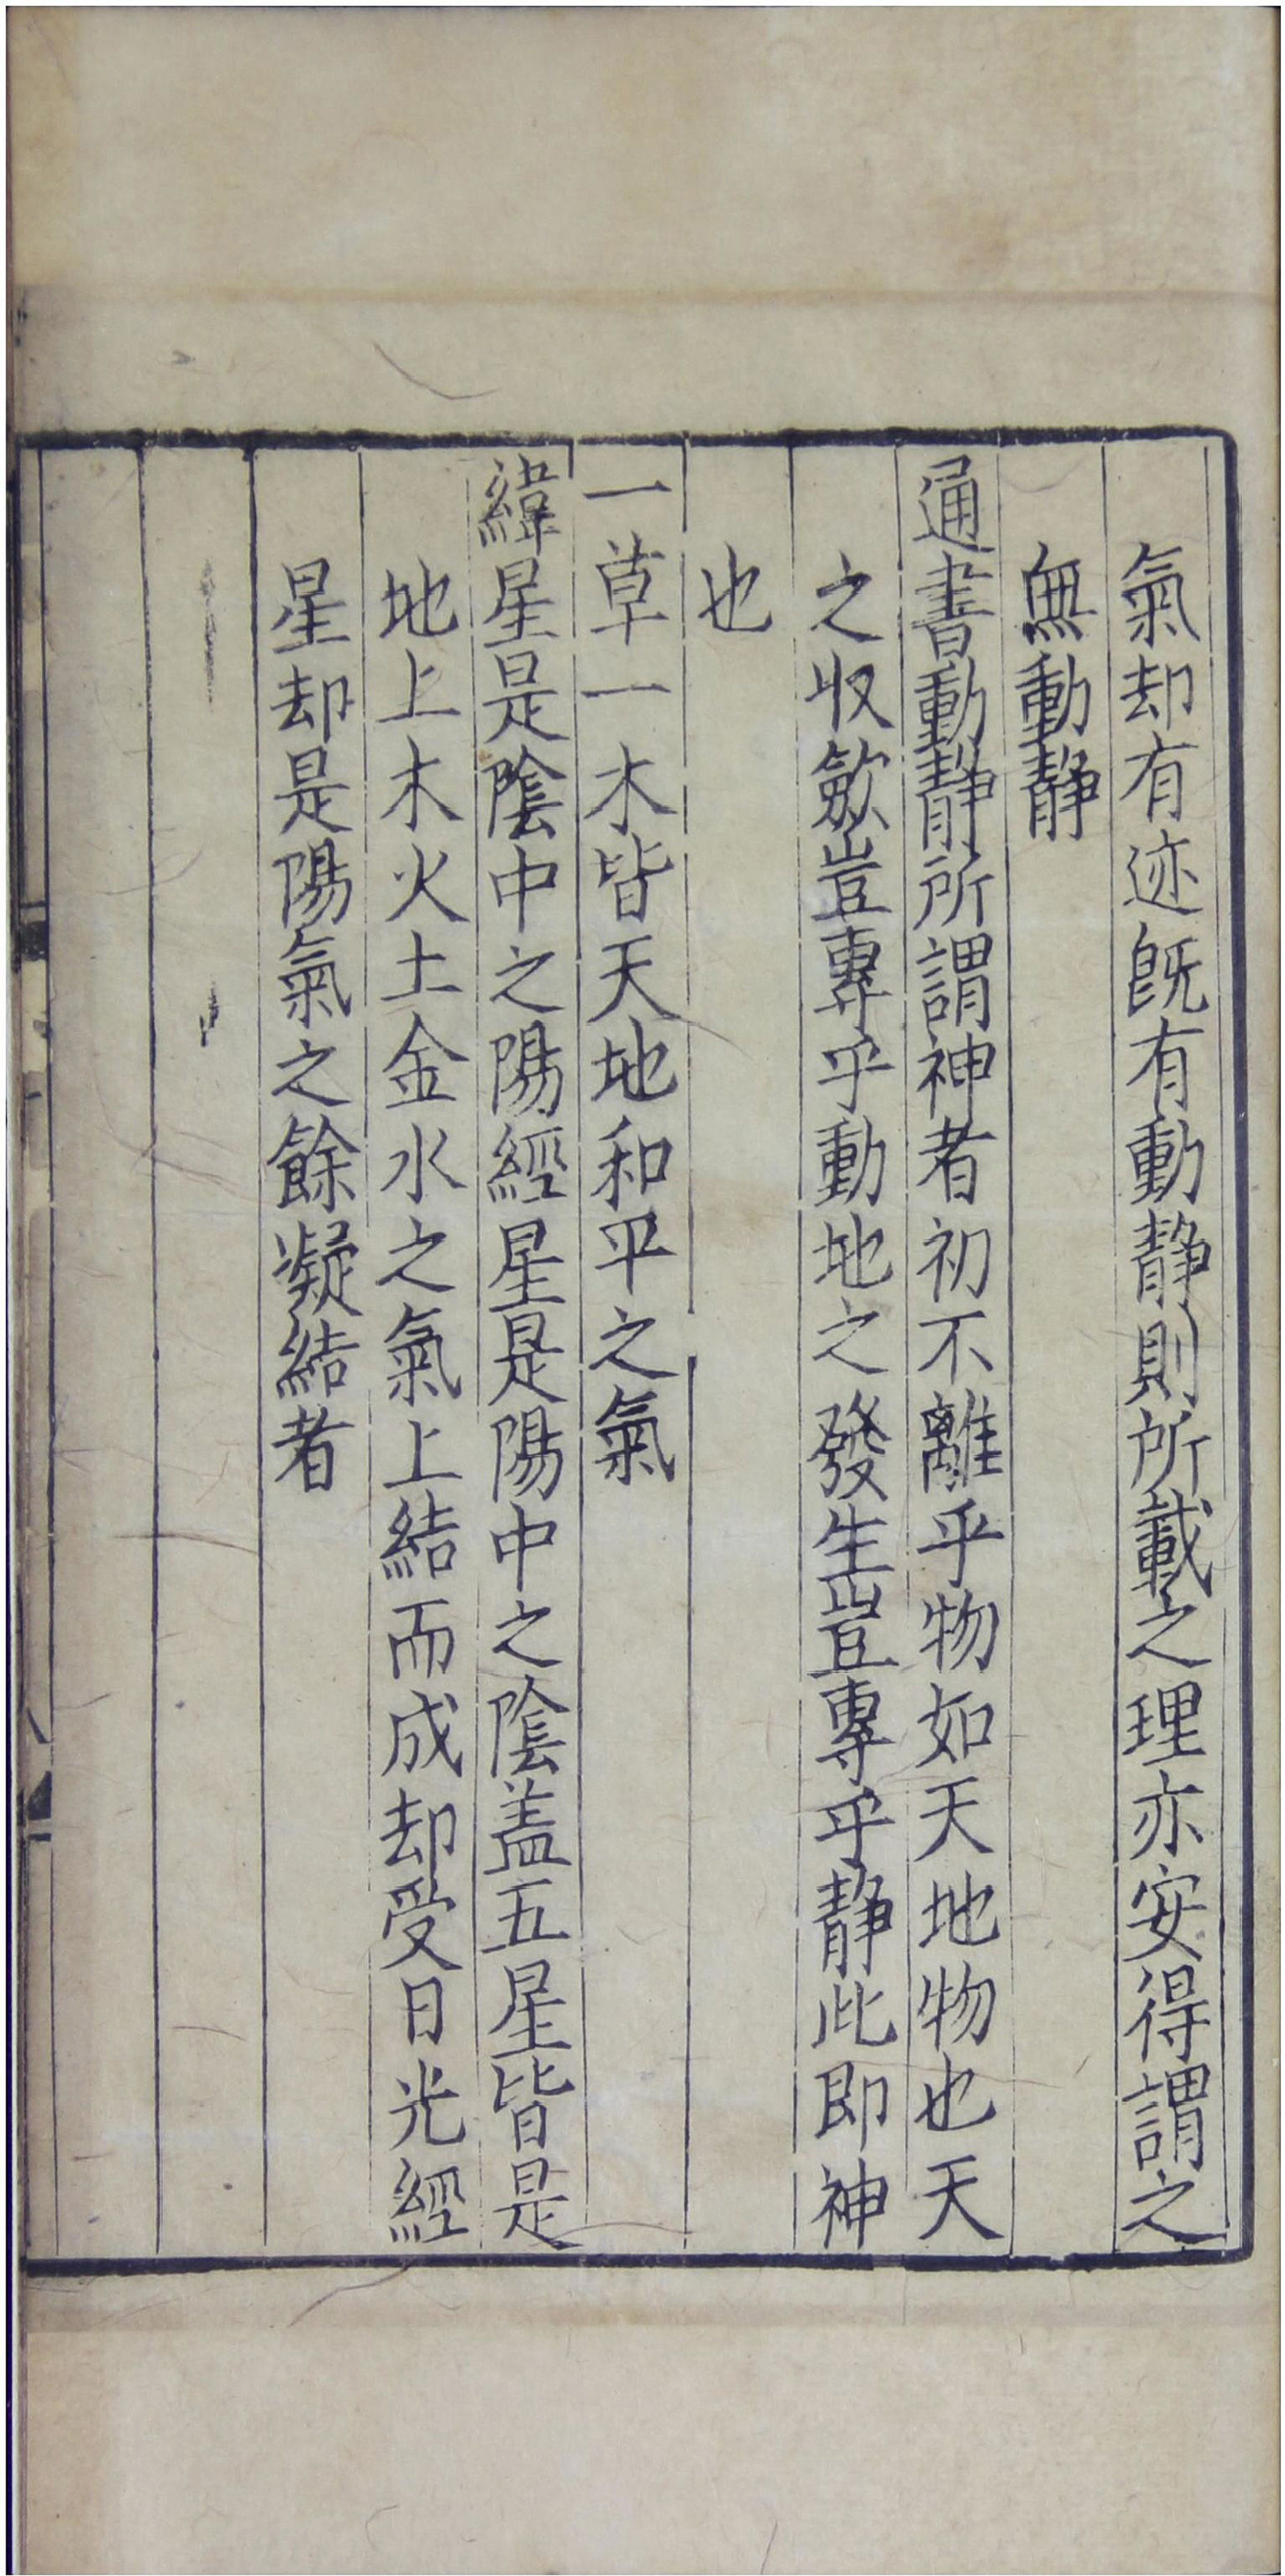 氣却有迹旣有動静則所載之理亦安得謂之
無動静
通書動静所謂神者初不離乎物如天地物也天
之收歛豈專乎動地之發生豈專乎静此即神
也
一草一木皆天地和平之氣
緯星是陰中之陽經星是陽中之陰盖五星皆是
地上木火土金水之氣上結而成却受日光經
星却是陽氣之餘凝結者